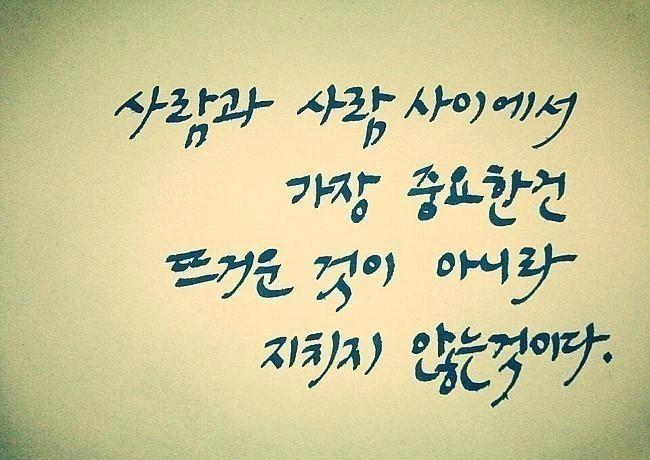 사람과 사람 사이에서
가장 중요한건
뜨거운 것이 아니라
지치지 않는것이다.